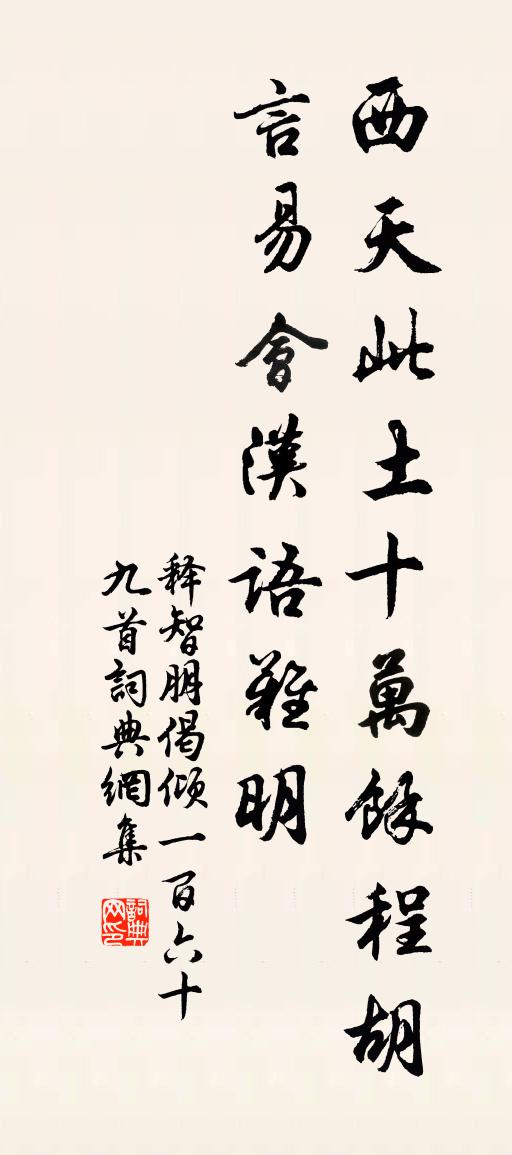 西天此土十萬餘程胡
言易會漢語難明
释智朋偈傾一百六十
九首詞典網集
詞典
网印